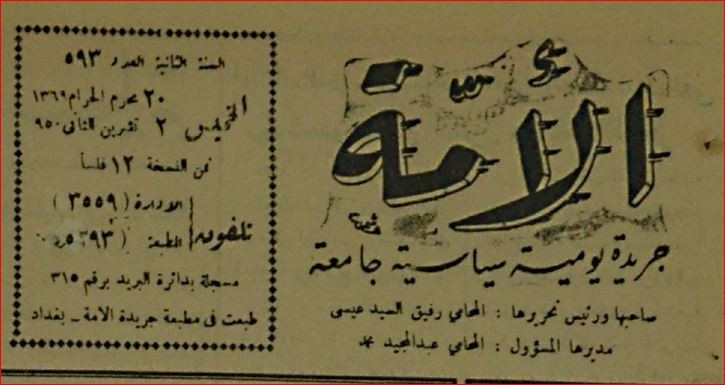 الأمة
جريدة يومية سياسية جامعة
صاحبها ورئيس تحريرها : المحامي رفيق السيد عيسى
مديرها المسؤول : المحامي عبدالمجيد محمد
السنة الثانية العدد ٥٩٣
الخميس
٢٠ محرم الحرام ١٣٦٩
٢ تشرين الثاني ٩٥٠
ثمن النسخة ١٢ فلساً
تلفون
الادارة ( ٣٥٥٩ )
المطبعة
مسجلة بدائرة البريد برقم ٣١٥
طبعت في مطبعة جريدة الأمة ــ بغداد